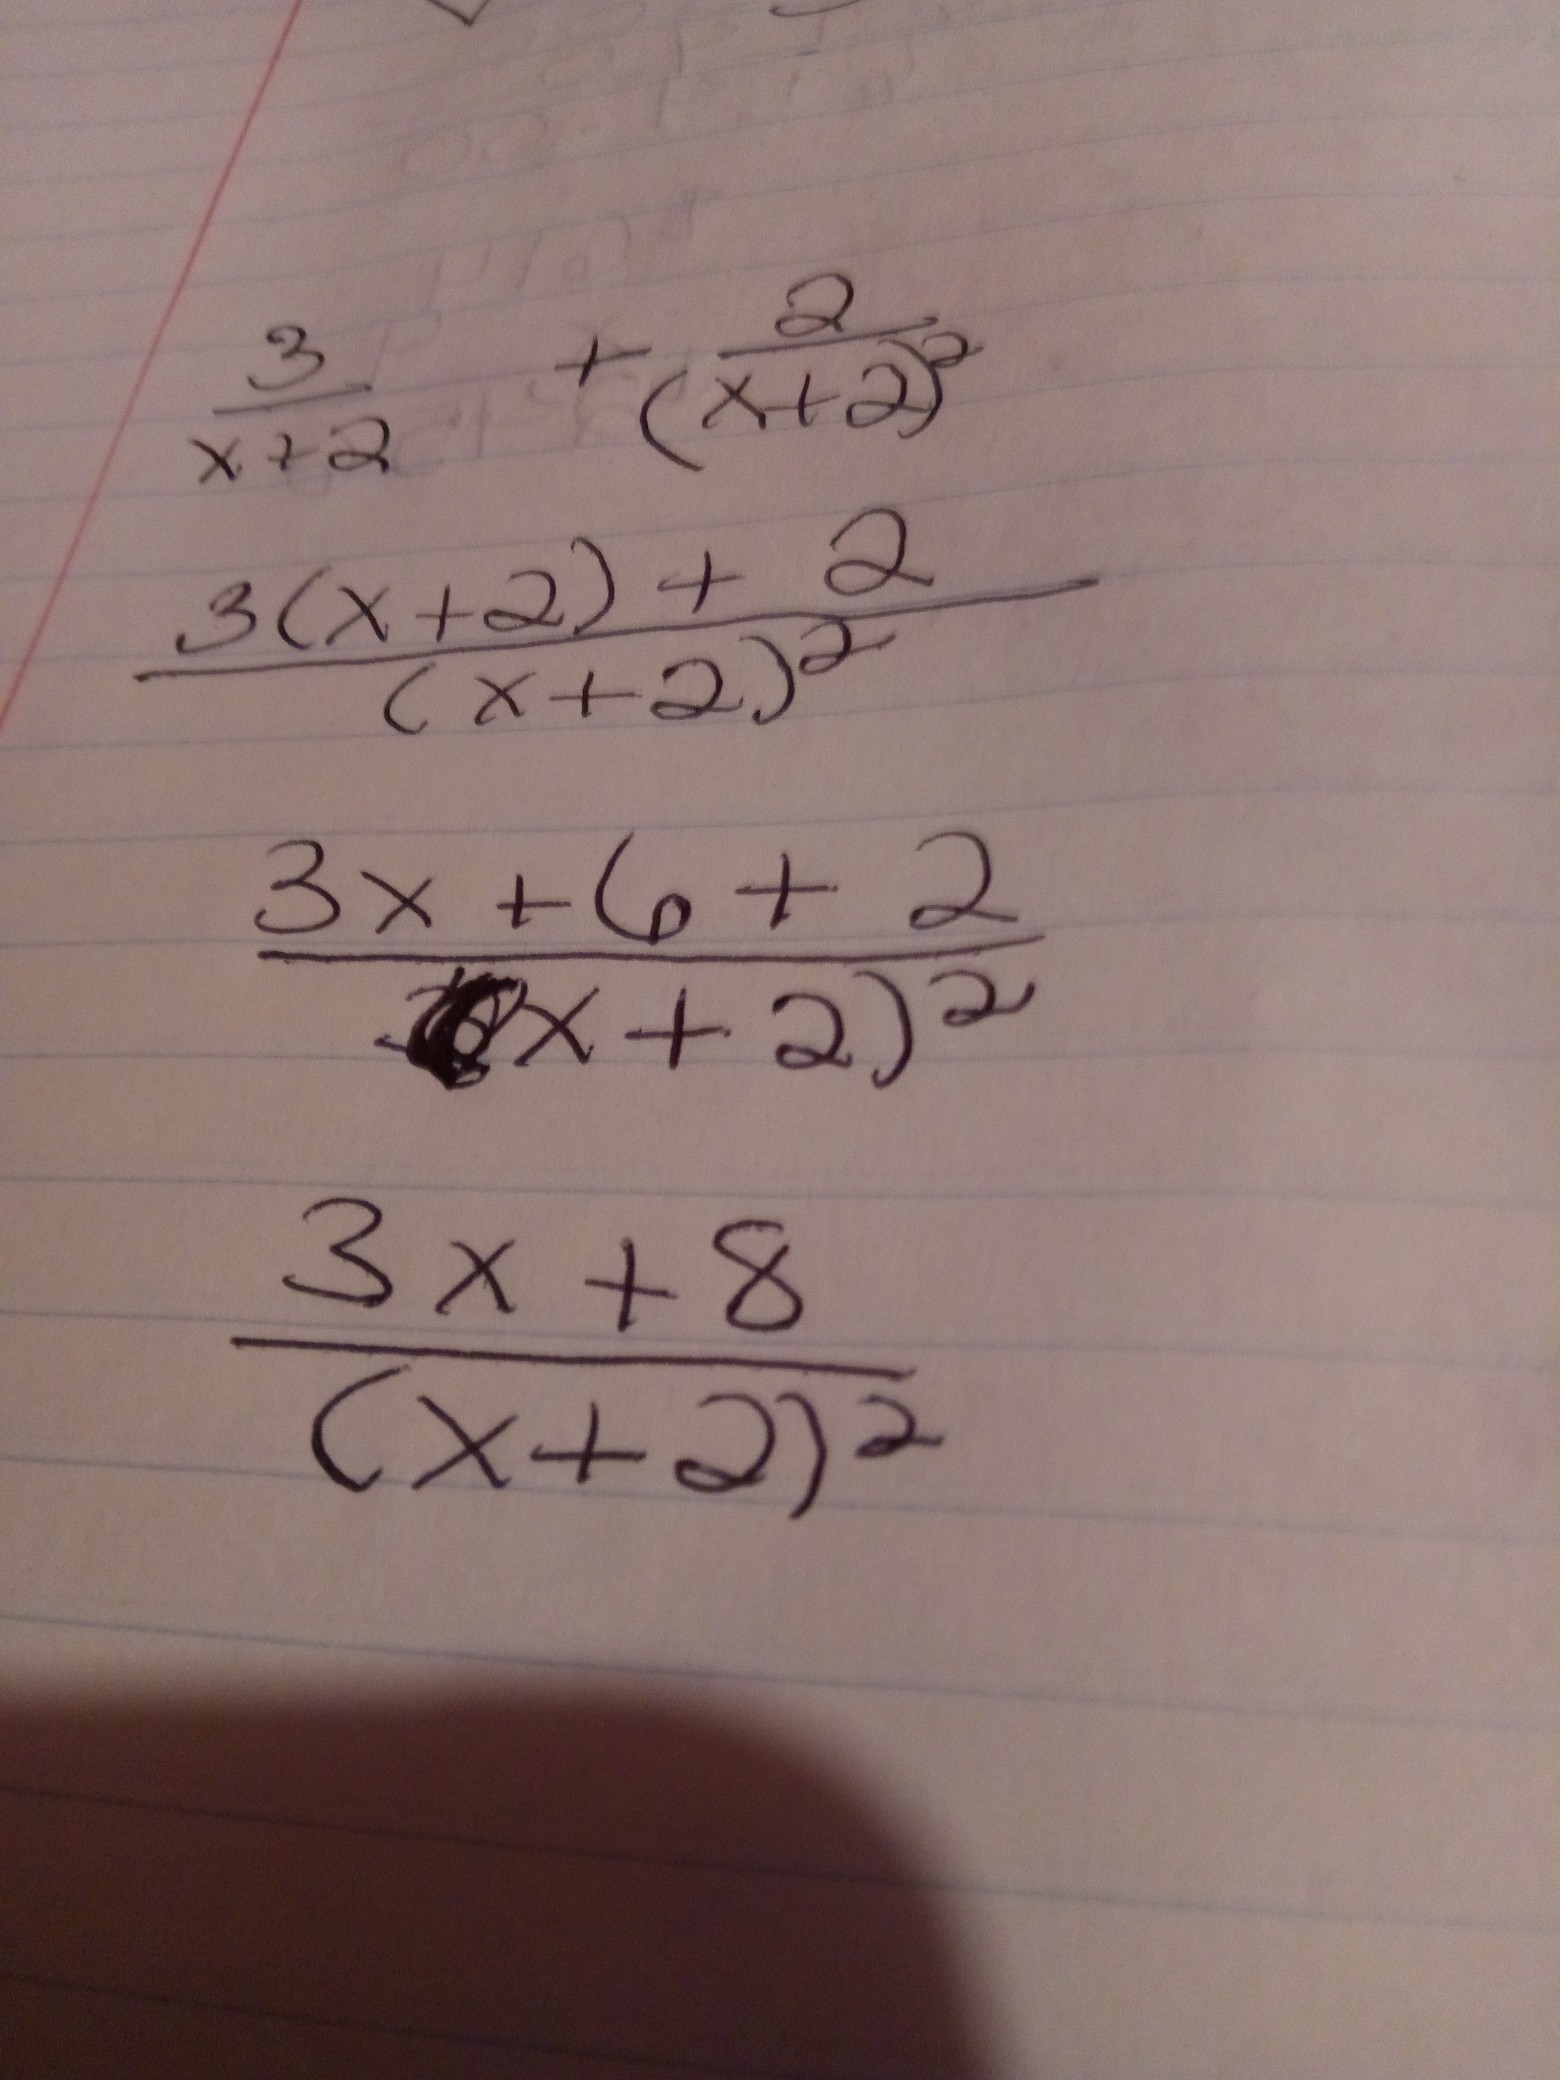 3/(x+2) + 2/(x+2)²
(3(x+2) + 2)/(x+2)²
(3x + 6 + 2)/(x+2)²
(3x + 8)/(x+2)²